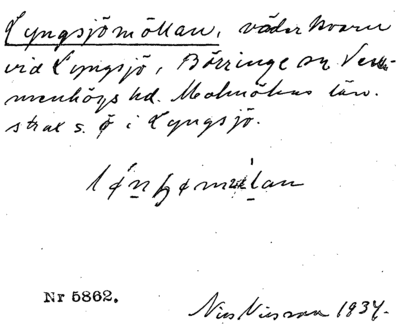 Lyngsjömöllan, väderkvarn
vid Lyngsjö, Börringe sn, Vem-
menhögs hd. Malmöhus län.
strax s. ö i Lyngsjö.
Nr 5862.
Nils Nilsson 1934.